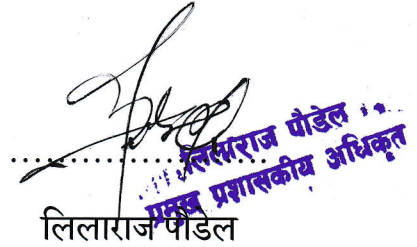 लिलाराज पौडेल
प्रमुख प्रशासकीय अधिकृत
लिलाराज पौडेल